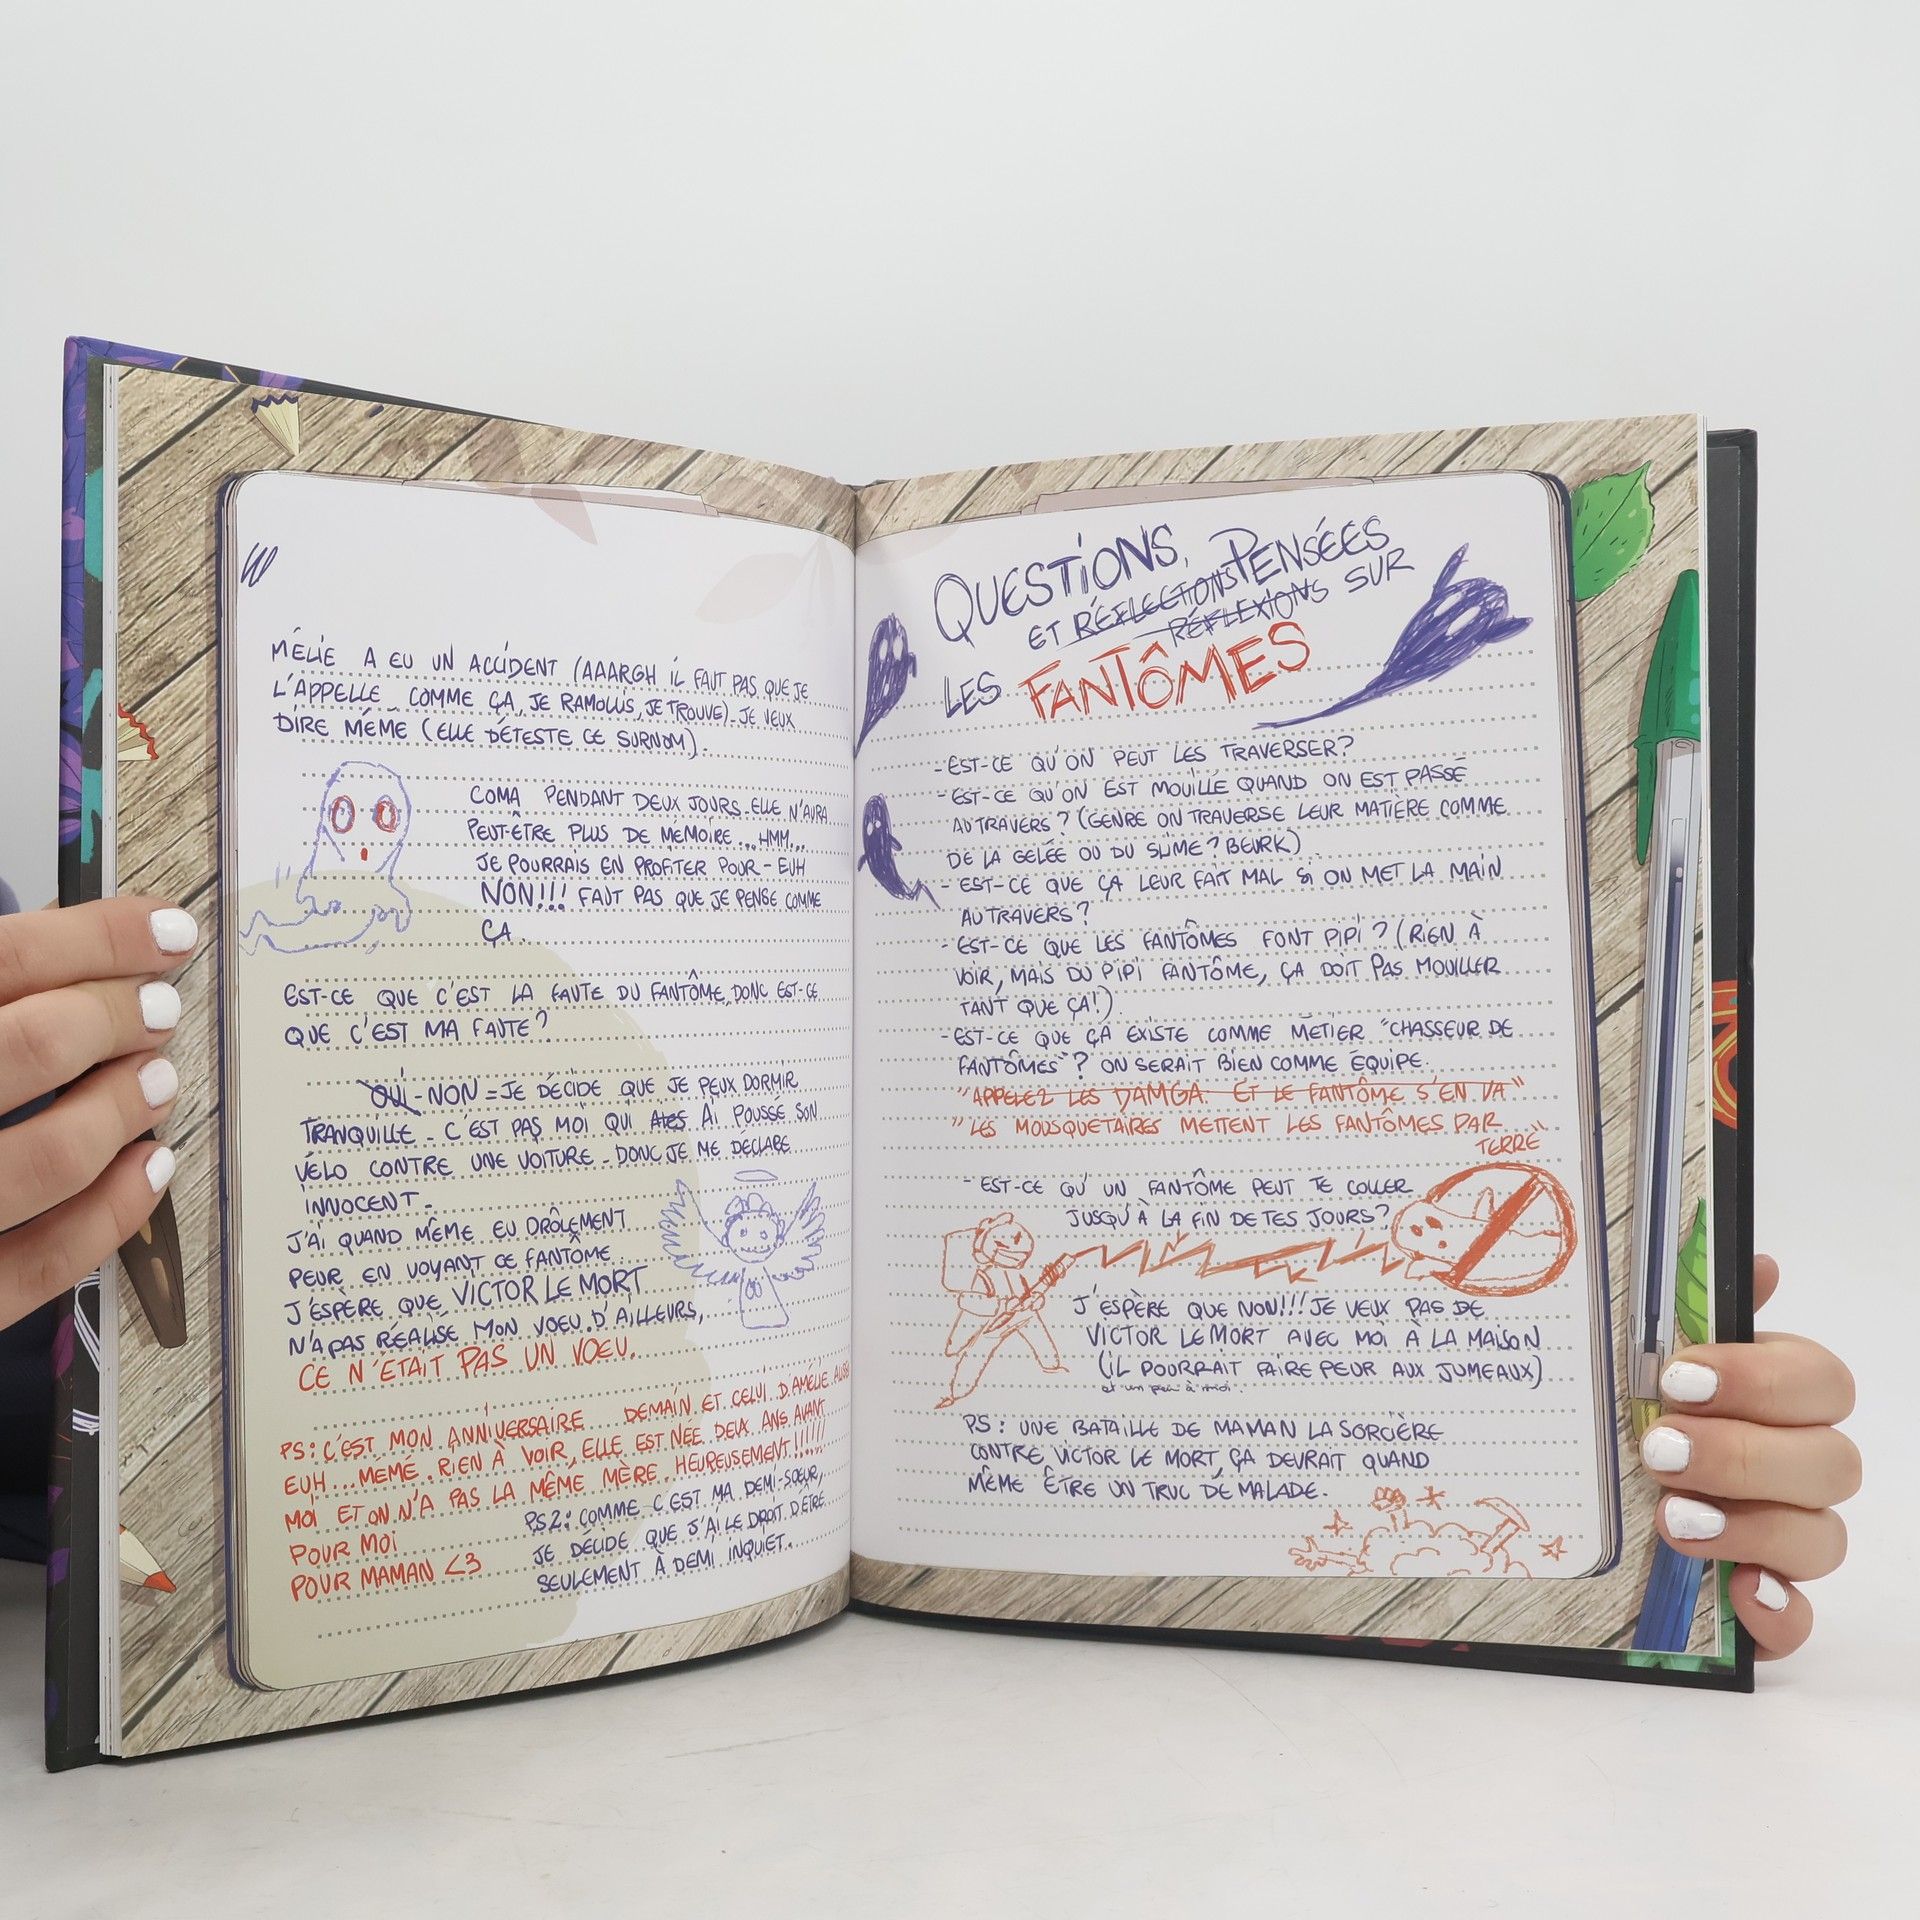 MÉLIE A EU UN ACCIDENT (AAARGH IL FAUT PAS QUE JE
L'APPELLE COMME ÇA, JE RAMOLLIS, JE TROUVE). JE VEUX
DIRE MÉMÉ (ELLE DÉTESTE CE SURNOM).
COMA PENDANT DEUX JOURS. ELLE N'AURA
PEUT-ÊTRE PLUS DE MÉMOIRE... HMM...
JE POURRAIS EN PROFITER POUR - EUH
NON!!! FAUT PAS QUE JE PENSE COMME
ÇA.
EST-CE QUE C'EST LA FAUTE DU FANTÔME, DONC EST-CE
QUE C'EST MA FAUTE?
OUI - NON = JE DÉCIDE QUE JE PEUX DORMIR
TRANQUILLE - C'EST PAS MOI QUI AI POUSSÉ SON
VÉLO CONTRE UNE VOITURE. DONC JE ME DÉCLARE
INNOCENT.
J'AI QUAND MÊME EU DRÔLEMENT
PEUR EN VOYANT CE FANTÔME.
J'ESPÈRE QUE VICTOR LE MORT
N'A PAS RÉALISÉ MON VOEU D'AILLEURS,
CE N'ÉTAIT PAS UN VOEU.
PS: C'EST MON ANNIVERSAIRE DEMAIN ET CELUI D'AMÉLIE AUSSI
EUH... MÉMÉ. RIEN À VOIR, ELLE EST NÉE DEUX ANS AVANT
MOI ET ON N'A PAS LA MÊME MÈRE. HEUREUSEMENT!!!!!!
POUR MOI
POUR MAMAN <3
PS2: COMME C'EST MA DEMI-SOEUR,
JE DÉCIDE QUE J'AI LE DROIT D'ÊTRE
SEULEMENT À DEMI INQUIET.
QUESTIONS, PENSÉES
ET RÉFLECTIONS RÉFLEXIONS SUR
LES FANTÔMES
- EST-CE QU'ON PEUT LES TRAVERSER?
- EST-CE QU'ON EST MOUILLÉ QUAND ON EST PASSÉ
AU TRAVERS? (GENRE ON TRAVERSE LEUR MATIÈRE COMME
DE LA GELÉE OU DU SLIME? BEURK)
- EST-CE QUE ÇA LEUR FAIT MAL SI ON MET LA MAIN
AU TRAVERS?
- EST-CE QUE LES FANTÔMES FONT PIPI? (RIEN À
VOIR, MAIS DU PIPI FANTÔME, ÇA DOIT PAS MOUILLER
TANT QUE ÇA!)
- EST-CE QUE ÇA EXISTE COMME MÉTIER "CHASSEUR DE
FANTÔMES"? ON SERAIT BIEN COMME ÉQUIPE.
"APPELEZ LES DAMGA. ET LE FANTÔME S'EN VA"
"LES MOUSQUETAIRES METTENT LES FANTÔMES PAR
TERRE"
- EST-CE QU'UN FANTÔME PEUT TE COLLER
JUSQU'À LA FIN DE TES JOURS?
J'ESPÈRE QUE NON!!! JE VEUX PAS DE
VICTOR LE MORT AVEC MOI À LA MAISON
(IL POURRAIT FAIRE PEUR AUX JUMEAUX)
et un peu à moi.
PS: UNE BATAILLE DE MAMAN LA SORCIÈRE
CONTRE VICTOR LE MORT, ÇA DEVRAIT QUAND
MÊME ÊTRE UN TRUC DE MALADE.